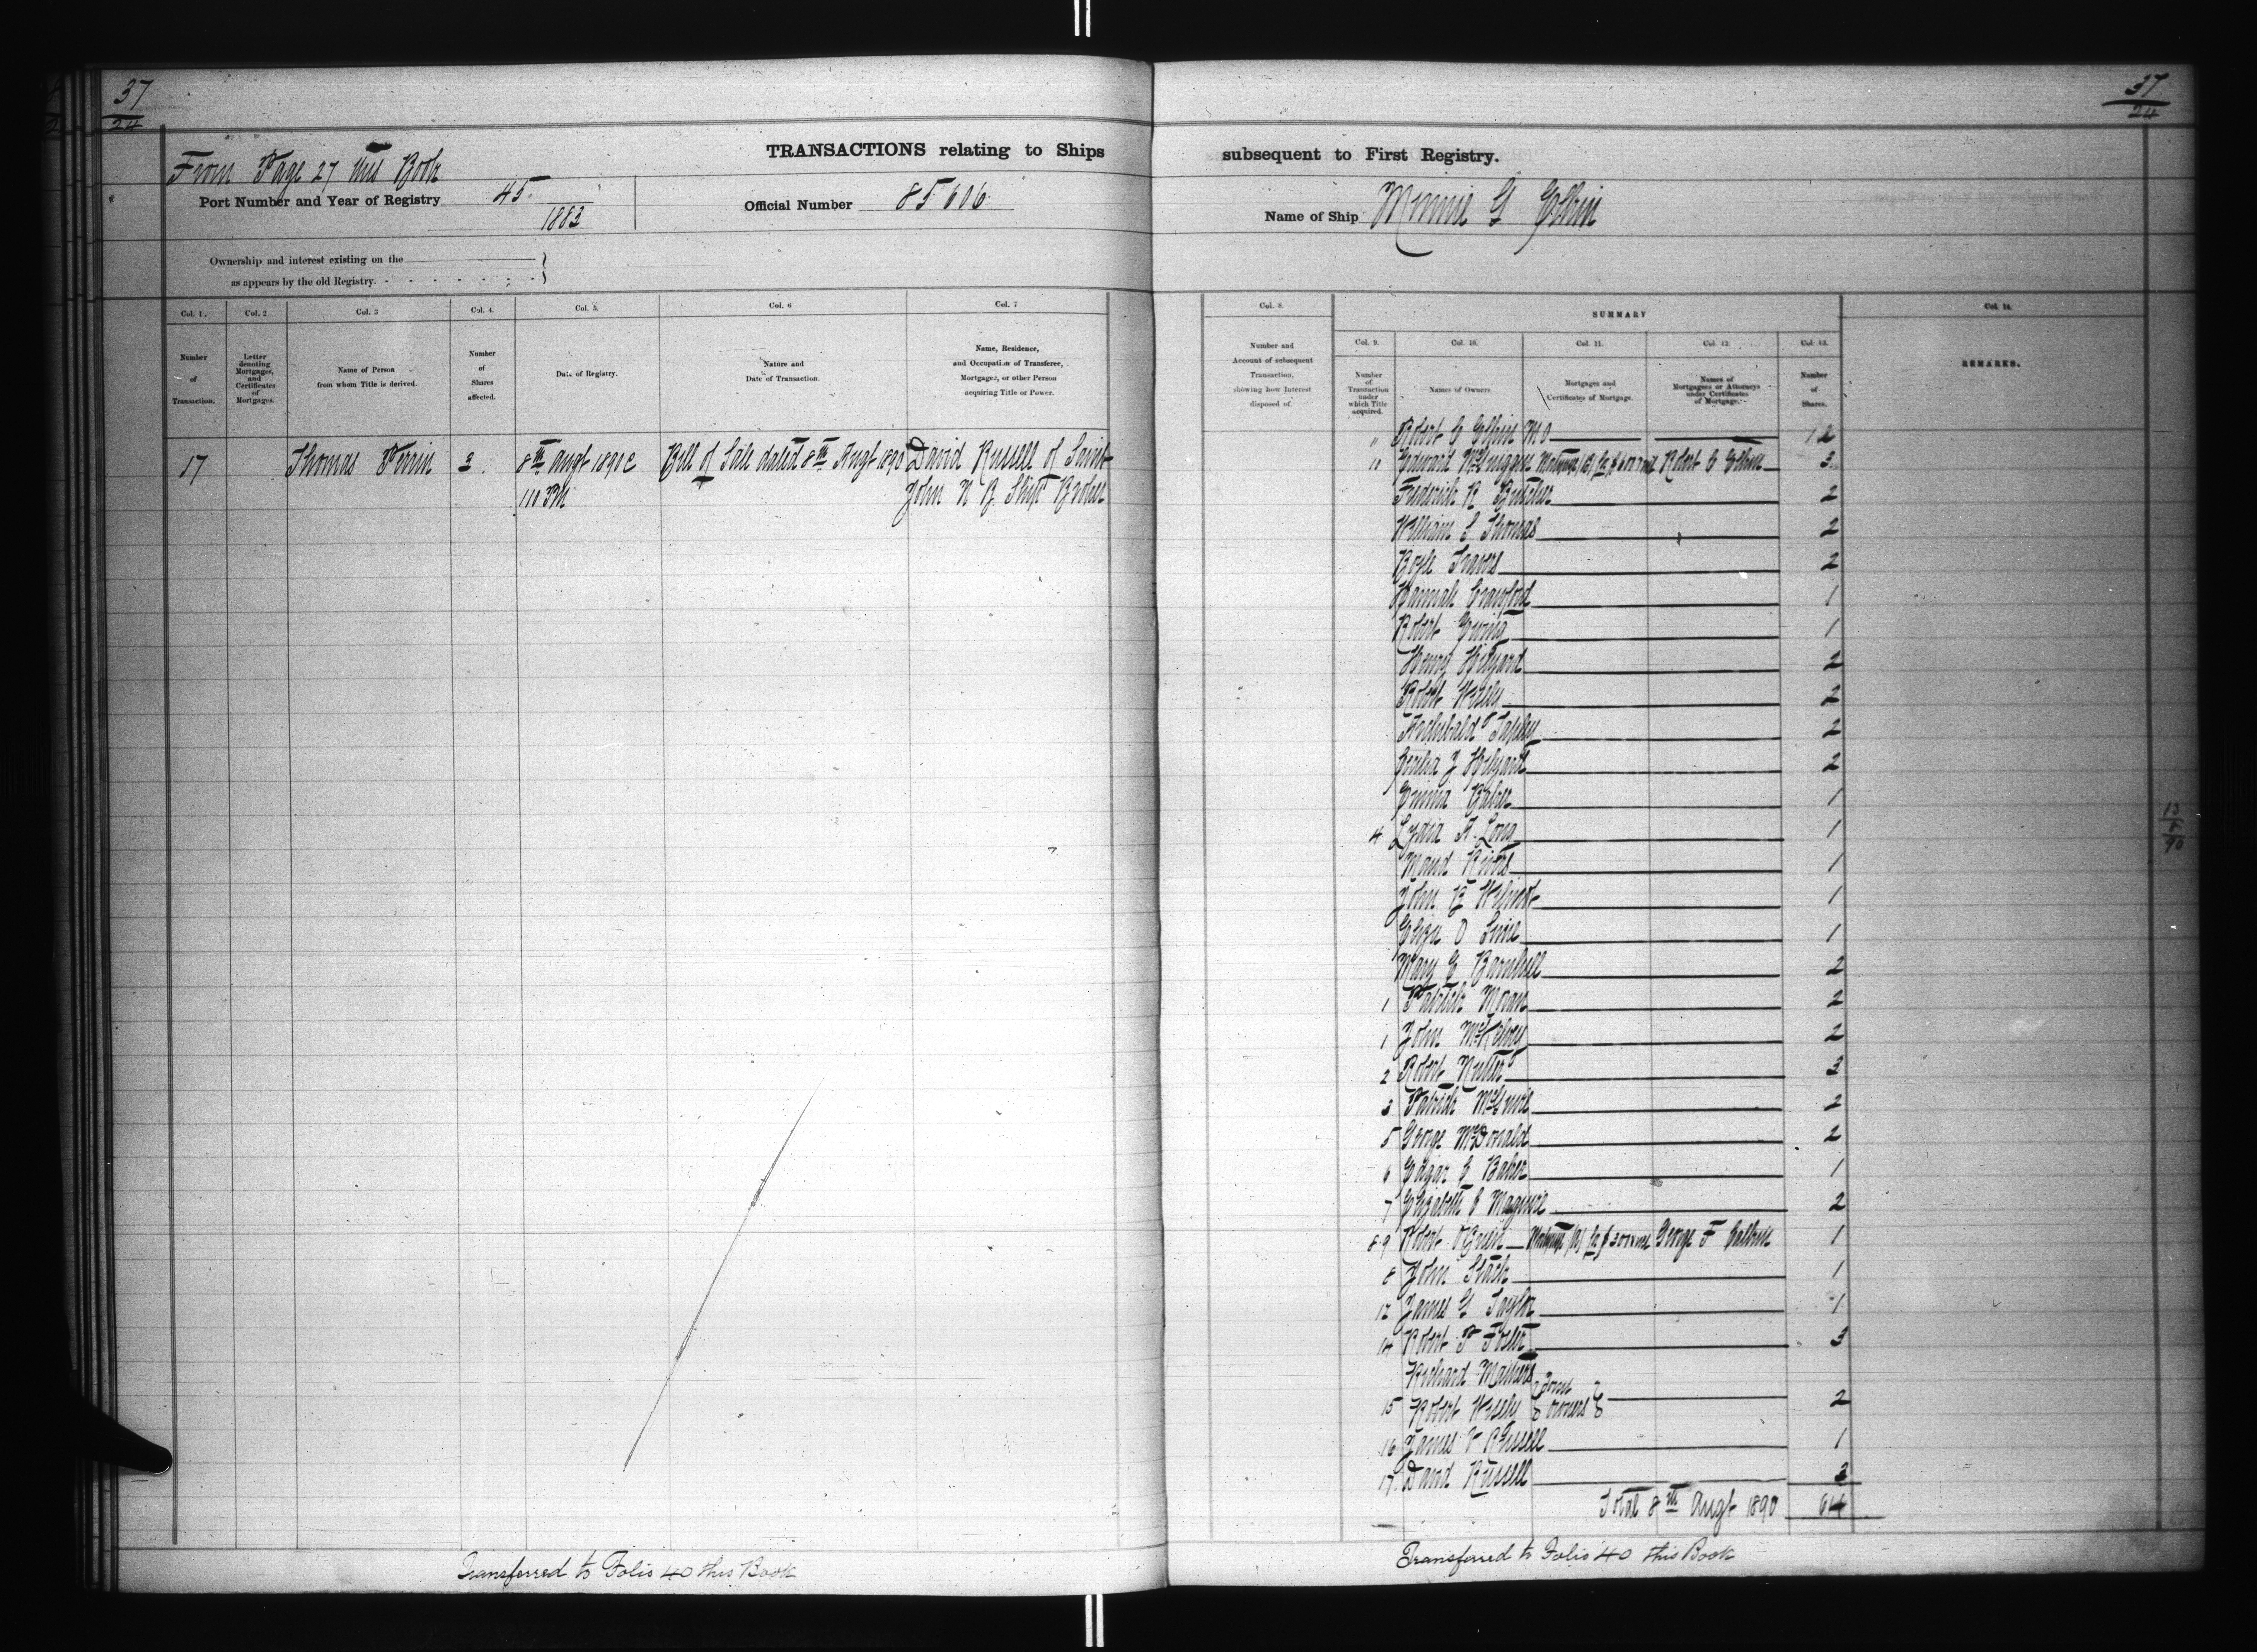 37
24
37
24
TRANSACTIONS relating to Ships
subsequent to First Registry.
From Page 27 this Book
Port Number and Year of Registry 45
1883
Official Number 85606
Name of Ship Minnie G Elkin
Ownership and interest existing on the
as appears by the old Registry.
Col. 1. Col. 2 Col. 3 Col. 4. Col. 5. Col. 6 Col. 7
Number of Transaction.
Letter denoting Mortgages, and Certificates of Mortgages.
Name of Person from whom Title is derived.
Number of Shares affected.
Date of Registry.
Nature and Date of Transaction.
Name, Residence, and Occupation of Transferee, Mortgagee, or other Person acquiring Title or Power.
17 Thomas Perrin 3 8th Augt 1890 Bill of Sale dated 8th Augt 1890 David Russell of Saint
1 10 PM John N B Ship Broker
Transferred to Folio 40 this Book
Col. 8. SUMMARY Col. 14.
Number and Account of subsequent Transaction, showing how Interest disposed of.
Col. 9. Col. 10. Col. 11. Col. 12 Col. 13.
REMARKS.
Number of Transaction under which Title acquired.
Names of Owners.
Mortgages and Certificates of Mortgage.
Names of Mortgagees or Attorneys under Certificates of Mortgage.
Number of Shares.
" Robert C Elkin MO 12
10 Edward McGuiggan Mortgage (B) for Robert C Elkin 3
Frederick R Butcher 2
William S Thomas 2
Boyle Travers 2
Hannah Crawford 1
Robert Ewing 1
Henry Hilyard 2
Robert Wisely 2
Archibald Tapley 2
Hilyard 2
Emma Baker 1
4 Lydia A. Long 1
Maud 1
John E Wilmot 1
Eliza D 1
Mary E Barnhill 2
1 Patrick Moran 2
1 John McKelvey 2
2 Robert Rutter 3
3 Patrick 2
5 George McDonald 2
6 Edgar C Baker 1
7 Elizabeth C Magivern 2
8 9 Robert Mortgage for George F Calkin 1
8 John Stack 1
12 James G Taylor 1
14 Robert P Foster 3
Richard Mathers Joint
15 Robert Wisely owners 2
16 James V Russell 1
17. David Russell 3
Total 8th Augt 1890 64
13
8
90
Transferred to Folio 40 this Book